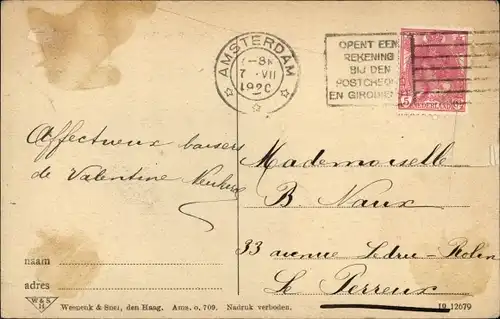 AMSTERDAM
7 VII
1920
OPENT EEN
REKENING
BIJ DEN
POSTCHEQUE
EN GIRODIENST
5
NEDERLAND
Affectueux baisers
de Valentine
Mademoiselle
B. Vaux
33 avenue Ledru-Rolin
Le Perreux
naam
adres
W&S
H
Weenenk & Snel, den Haag. Ams. o, 709. Nadruk verboden.
19 12679